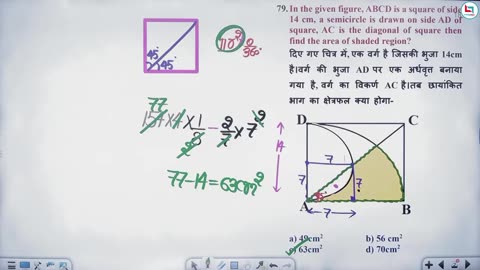 79. In the given figure, ABCD is a square of side
14 cm, a semicircle is drawn on side AD of
square, AC is the diagonal of square then
find the area of shaded region?
दिए गए चित्र में, एक वर्ग है जिसकी भुजा 14cm
है।वर्ग की भुजा AD पर एक अर्धवृत्त बनाया
गया है, वर्ग का विकर्ण AC है।तब छायांकित
भाग का क्षेत्रफल क्या होगा-
45°
45°
πr²
360
77
154×4×1/8 - 2/7×7²
2
77-14=63cm²
D
C
14
7
7
7
A
B
7
a) 49cm²
b) 56 cm²
c) 63cm²
d) 70cm²